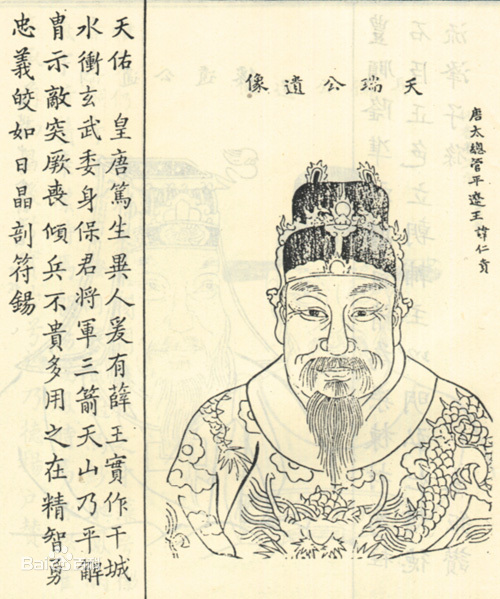 唐太總管平遼王諱仁貴
天瑞公遺像
天佑 皇唐篤生異人爰有薛王實作干城
水衝玄武委身保君將軍三箭天山乃平解
胄示敵突厥喪傾兵不貴多用之在精智勇
忠義皎如日晶剖符錫